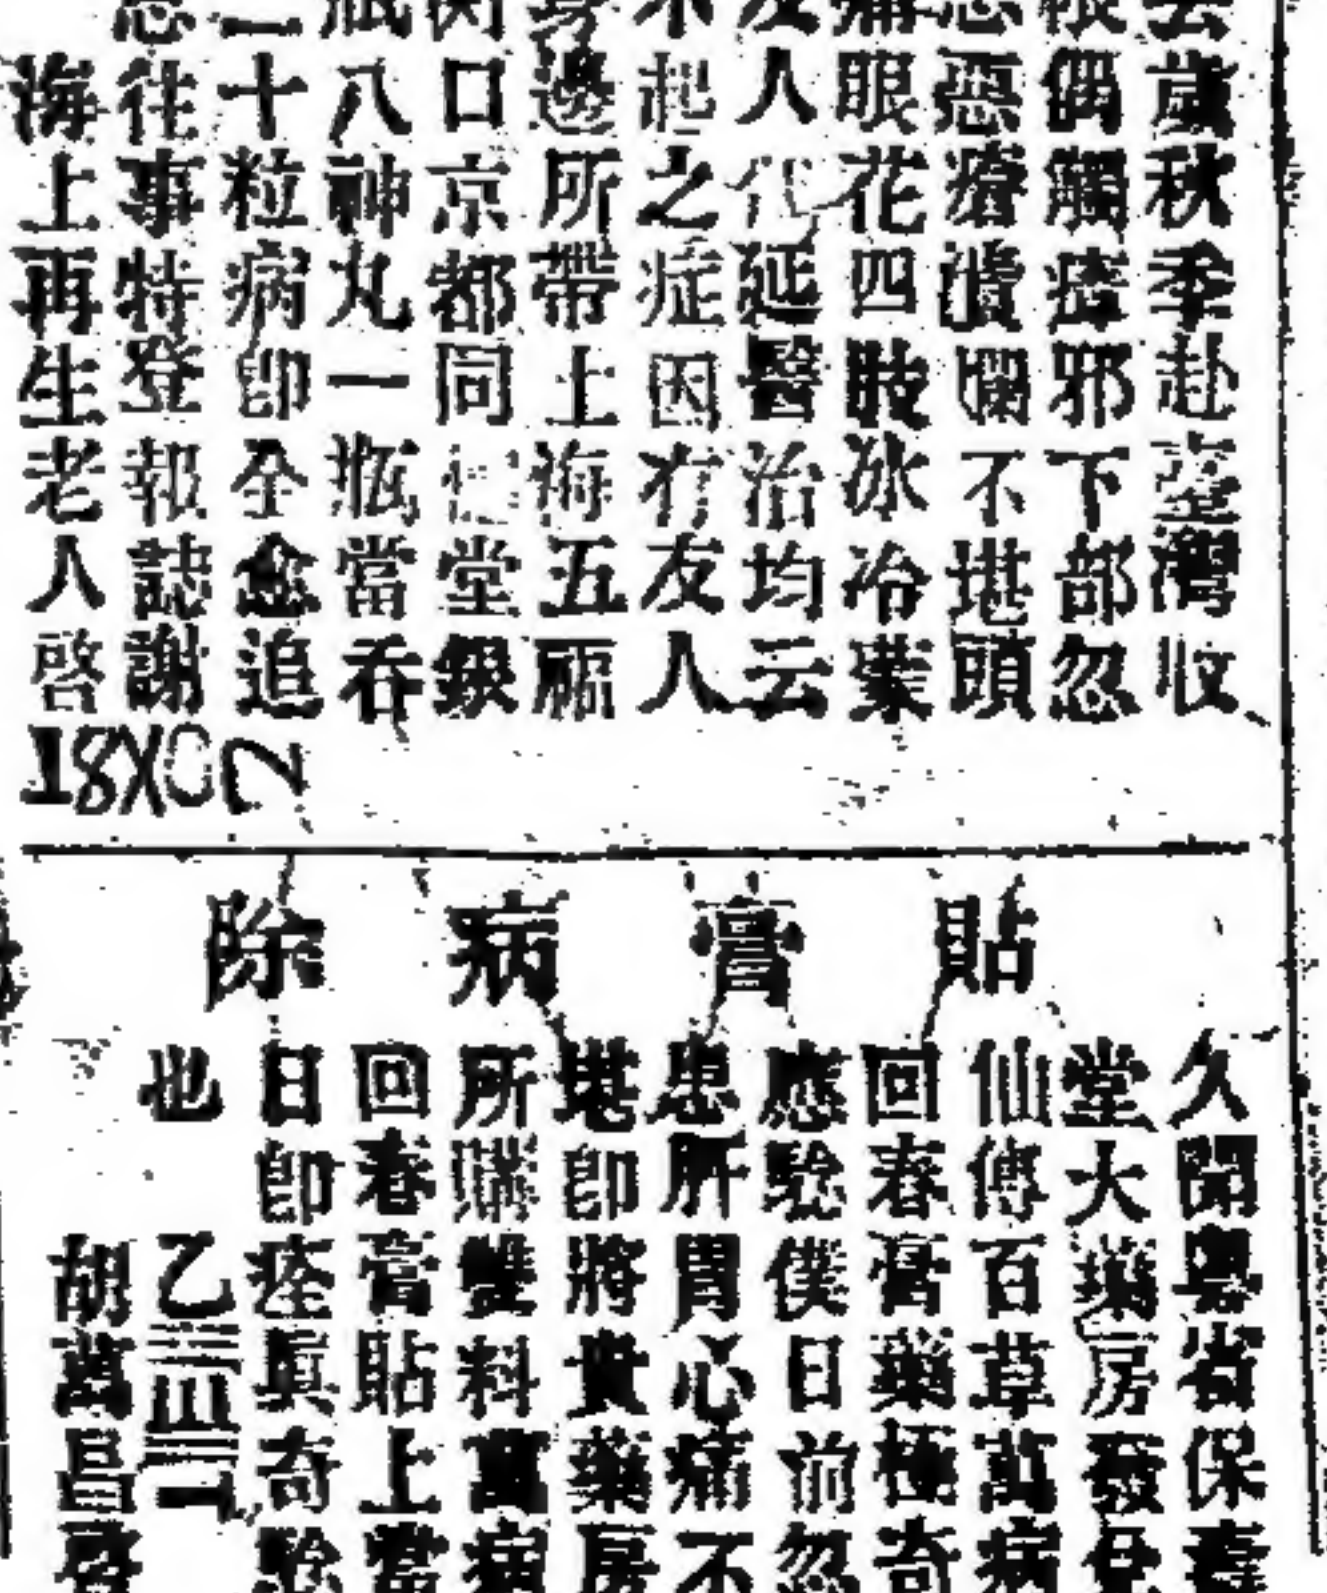 去歲秋季赴臺灣收
偶觸痧邪下部忽
惡瘡潰爛不堪頭
痛眼花四肢冰冷業
友人代延醫治均云
不起之症因有友人
身邊所帶上海五福
口京都同仁堂錁
八神丸一瓶當吞
二十粒病即全愈追
往事特登報誌謝
海上再生老人啓
18XC2
貼膏病除
久聞粵省保壽
堂大藥房發兌
仙傳百草萬病
回春膏藥極奇
應驗僕日前忽
患肝胃心痛不
堪即將貴藥房
所購雙料萬病
回春膏貼上當
日即痊真奇驗
也
乙三一
胡萬昌啓